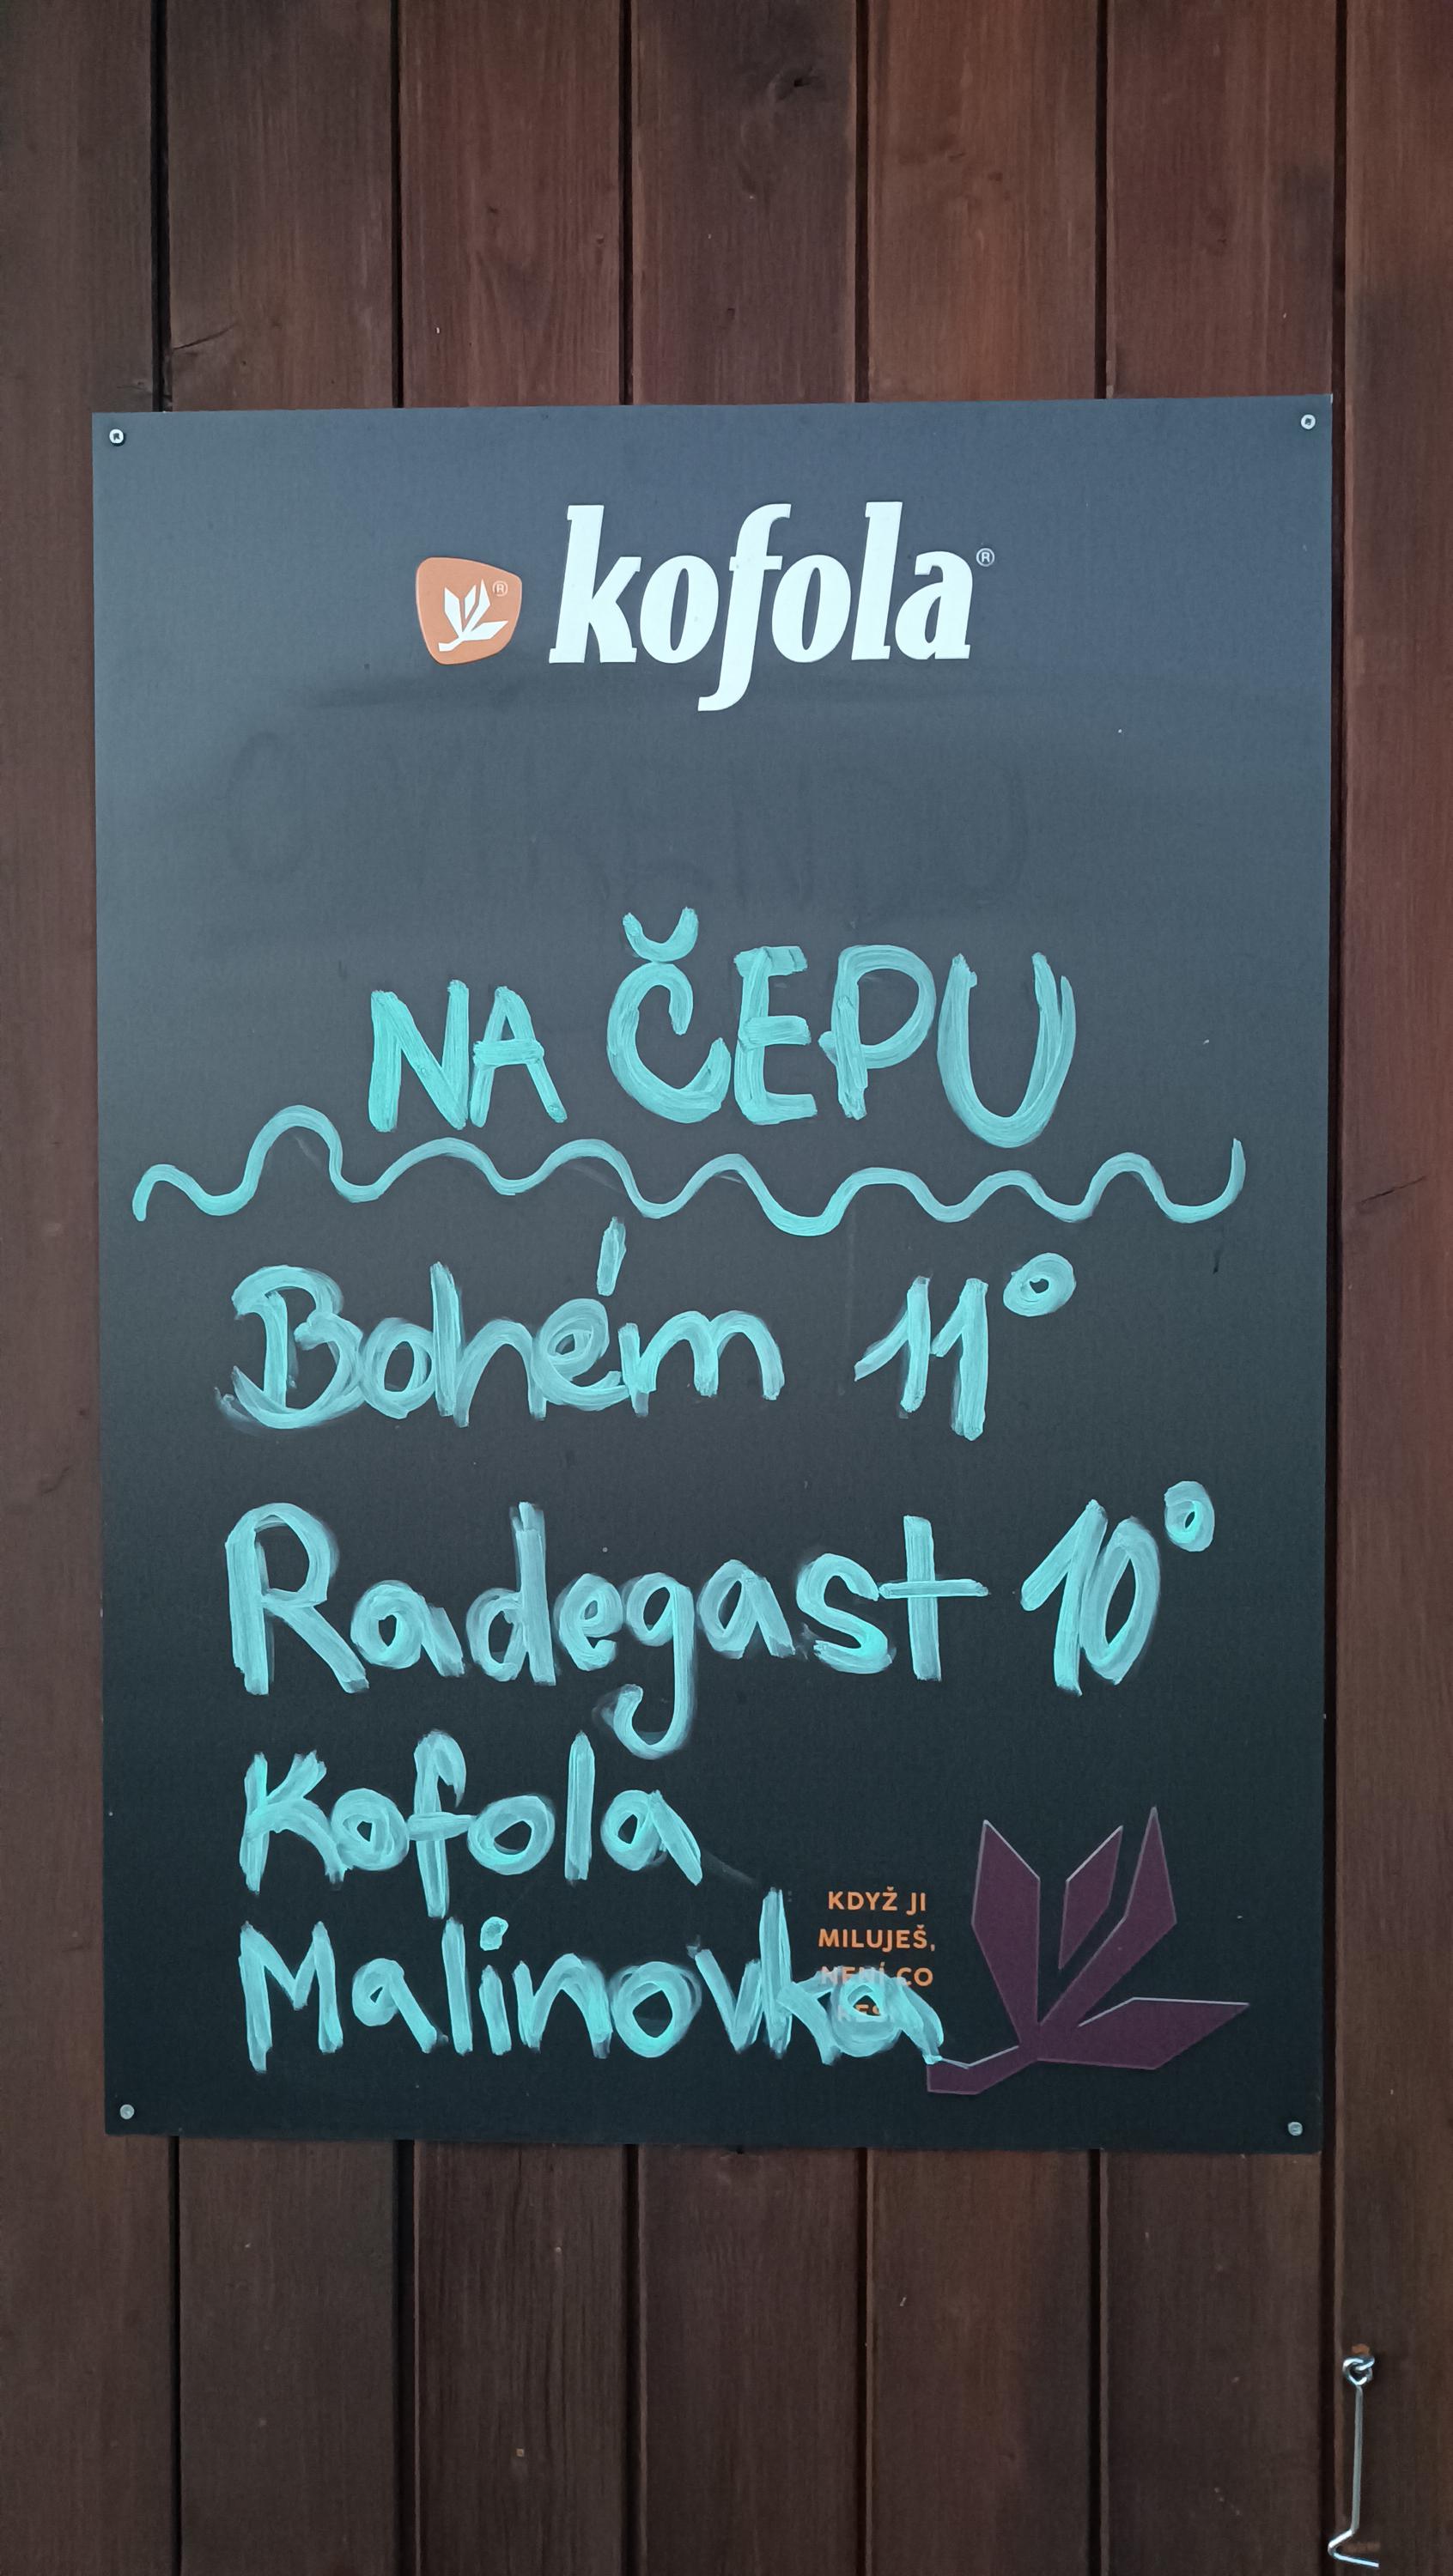 kofola®
NA ČEPU
Bohém 11°
Radegast 10°
Kofola
Malinovka
KDYŽ JI
MILUJEŠ,
NENÍ CO